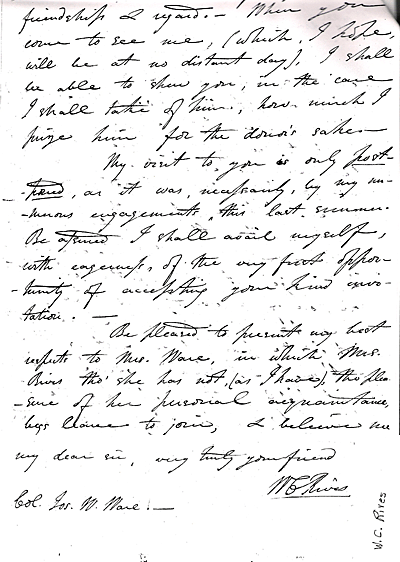 friendship & regard. — When you
come to see me, (which, I hope,
will be at no distant day), I shall
be able to shew you, in the care
I shall take of him, how much I
prize him for the donor's sake —
My visit to you is only post-
-poned, as it was, necessarily, by my nu-
-merous engagements, this last summer.
Be assured I shall avail myself,
with eagerness, of the very first oppor-
-tunity of accepting your kind invi-
-tation. —
Be pleased to present my best
respects to Mrs. Ware, in which Mrs.
Rives tho' she has not, (as I have), the plea-
-sure of her personal acquaintance,
begs leave to join, & believe me
my dear sir, very truly your friend
W C Rives
Col. Jos. W. Ware. —
W. C. Rives